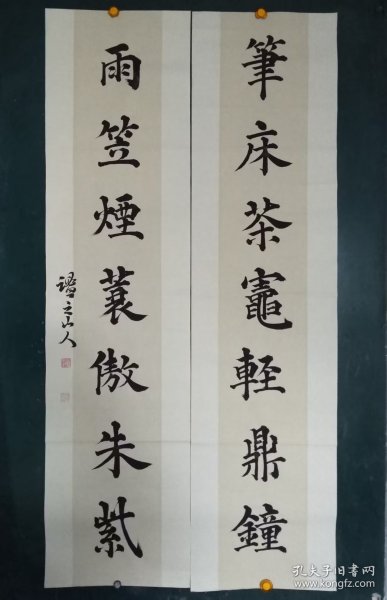 筆床茶竈輕鼎鐘
雨笠煙蓑傲朱紫
之山人
孔夫子旧书网
www.kongfz.com